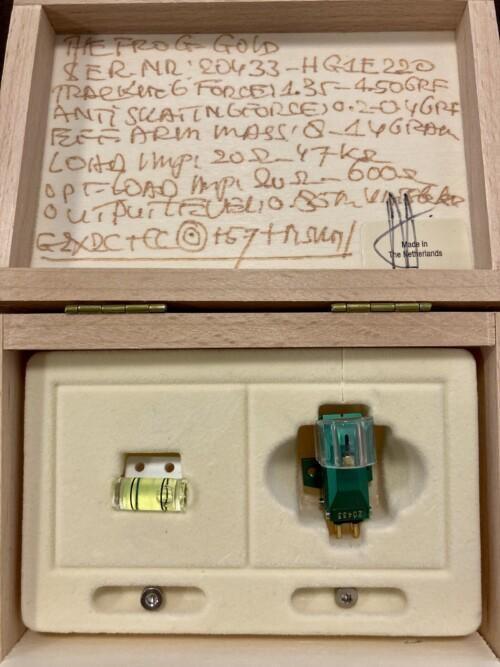 THE FROG GOLD
SER.NR: 20433-HG1E220
TRACKING FORCE: 1.35-1.50GRF
ANTISKATINGFORCE: 0.2-0.4GRF
EFF ARM MASS: 8-14GRAM
LOAD IMP: 20Ω-47KΩ
OPT-LOAD IMP: 20Ω-600Ω
OUTPUTLEVEL: 0.85M
Made in
The Netherlands
20433